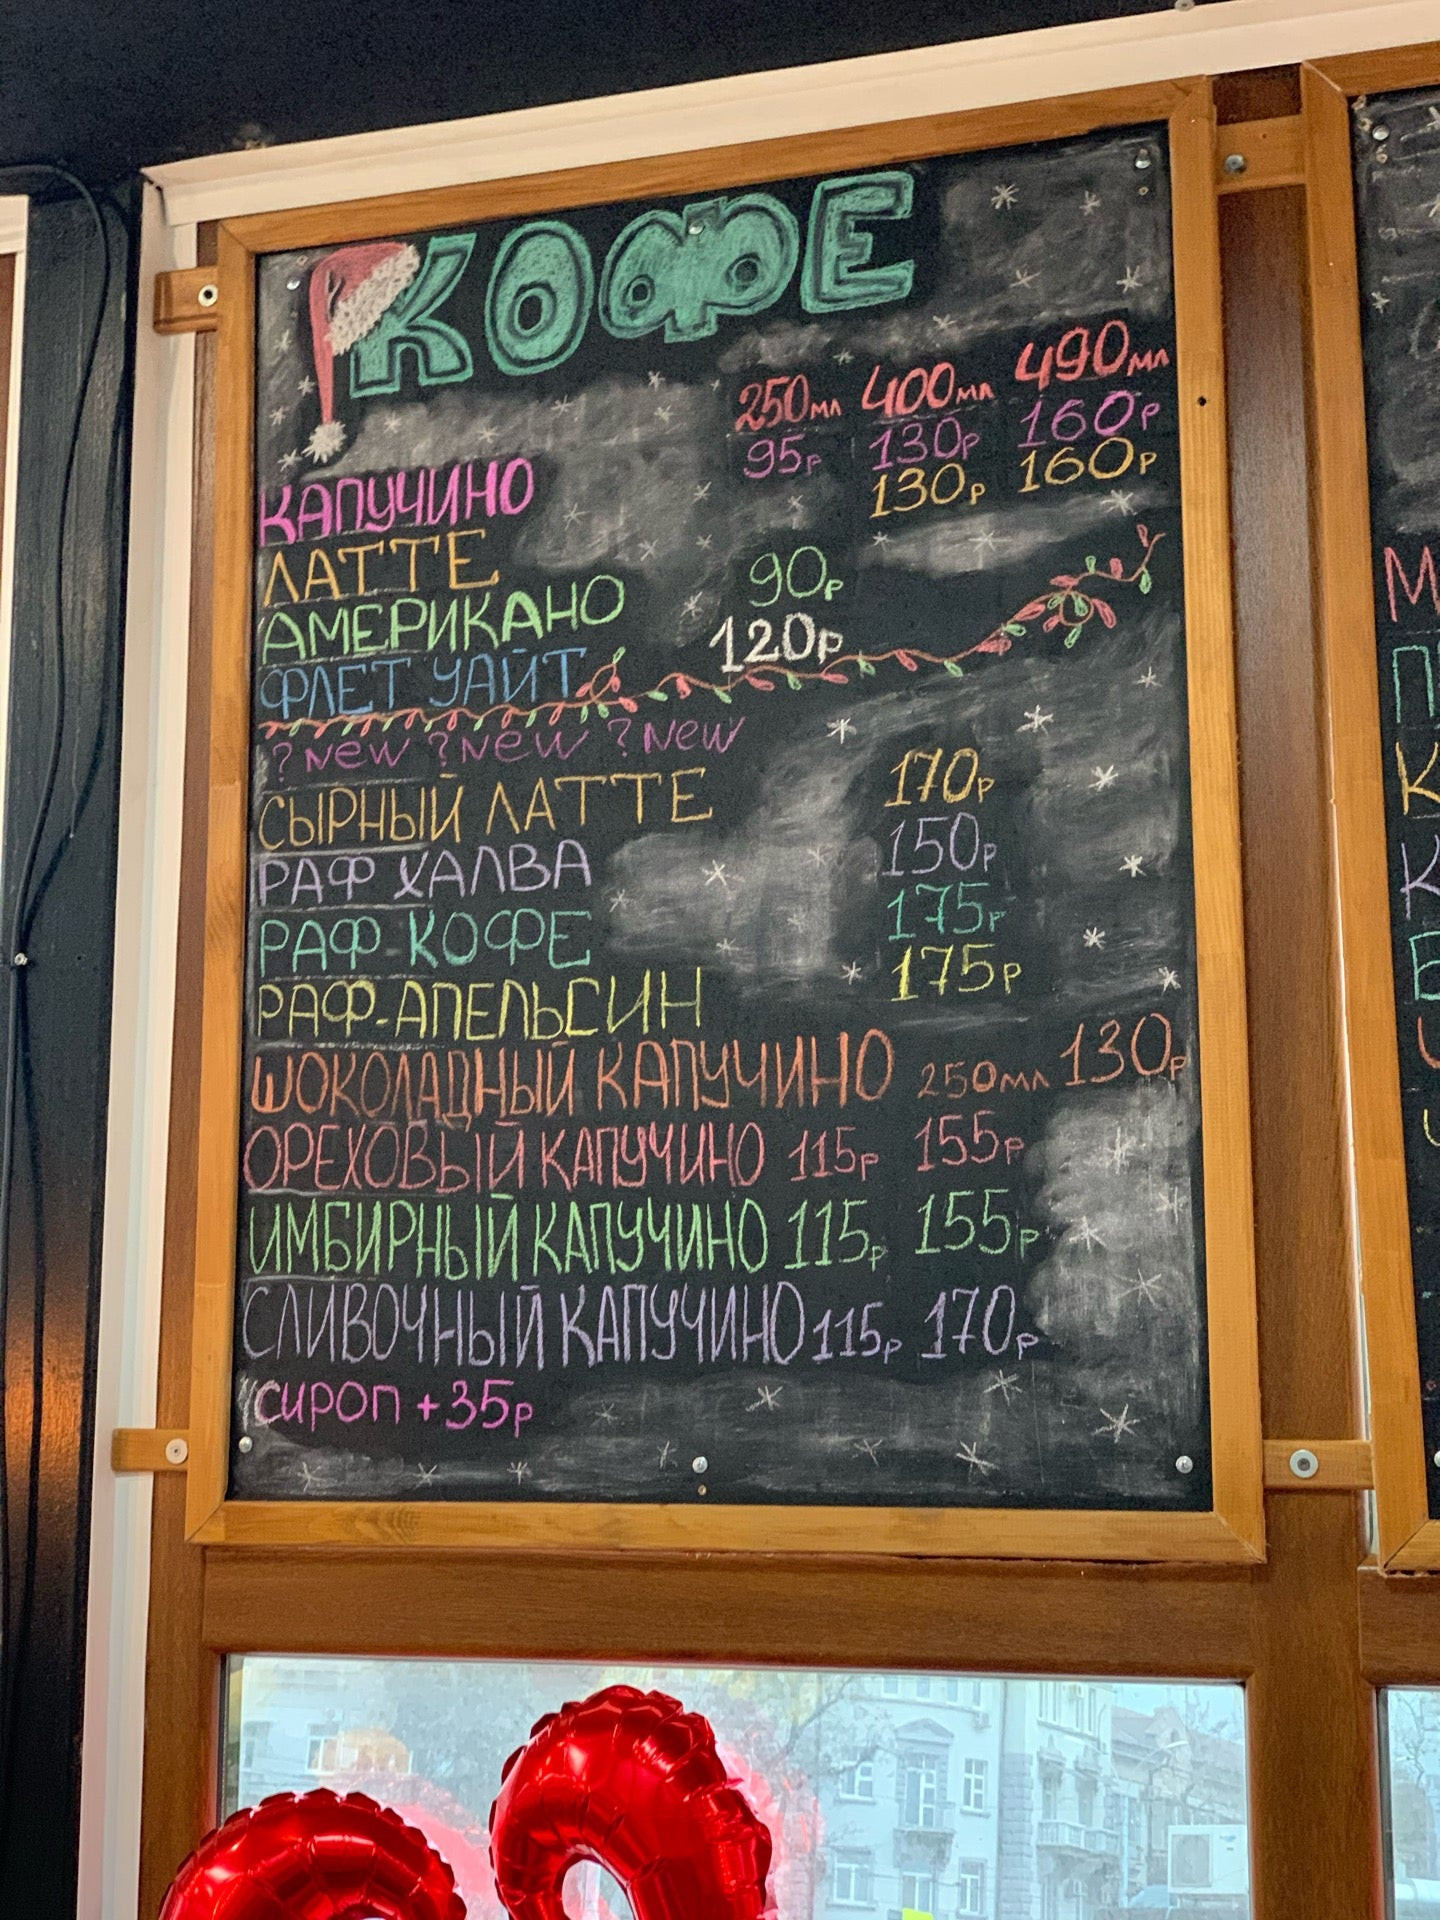 КОФЕ
250мл 400мл 490мл
КАПУЧИНО 95р 130р 160р
ЛАТТЕ 130р 160р
АМЕРИКАНО 90р
ФЛЕТ УАЙТ 120р
? New ? New ? New
СЫРНЫЙ ЛАТТЕ 170р
РАФ ХАЛВА 150р
РАФ-КОФЕ 175р
РАФ-АПЕЛЬСИН 175р
ШОКОЛАДНЫЙ КАПУЧИНО 250мл 130р
ОРЕХОВЫЙ КАПУЧИНО 115р 155р
ИМБИРНЫЙ КАПУЧИНО 115р 155р
СЛИВОЧНЫЙ КАПУЧИНО 115р 170р
СИРОП +35р